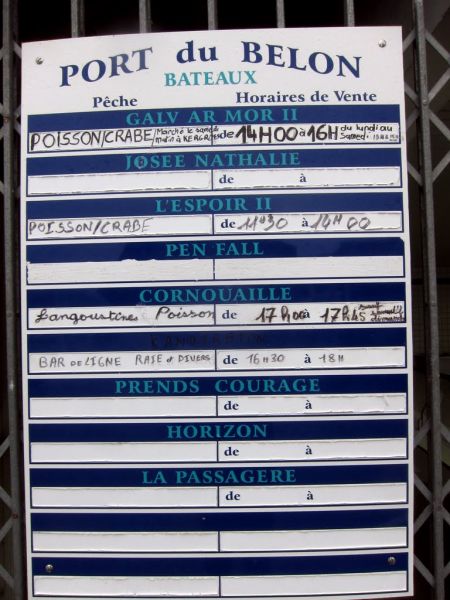 PORT du BELON
BATEAUX
Pêche Horaires de Vente
GALV AR MOR II
POISSON/CRABE/ Marché le samedi matin à de 14H00 à 16H du lundi au Samedi
JOSEE NATHALIE
de à
L'ESPOIR II
POISSON/CRABE de 11H30 à 14H00
PEN FALL
CORNOUAILLE
Langoustines Poisson de 17h00 à 17h45 sauf
BAR DE LIGNE RAIE et DIVERS de 16H30 à 18H
PRENDS COURAGE
de à
HORIZON
de à
LA PASSAGERE
de à